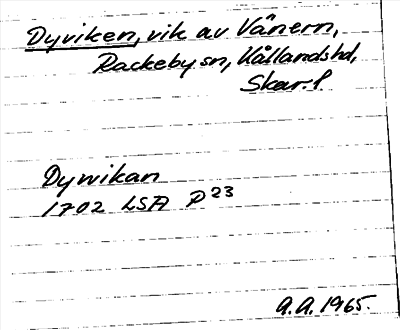 Dyviken, vik av Vänern,
Rackeby sn, Kållandshd,
Skar. l.
Dywikan
1702 LSA P 23
A.A. 1965.